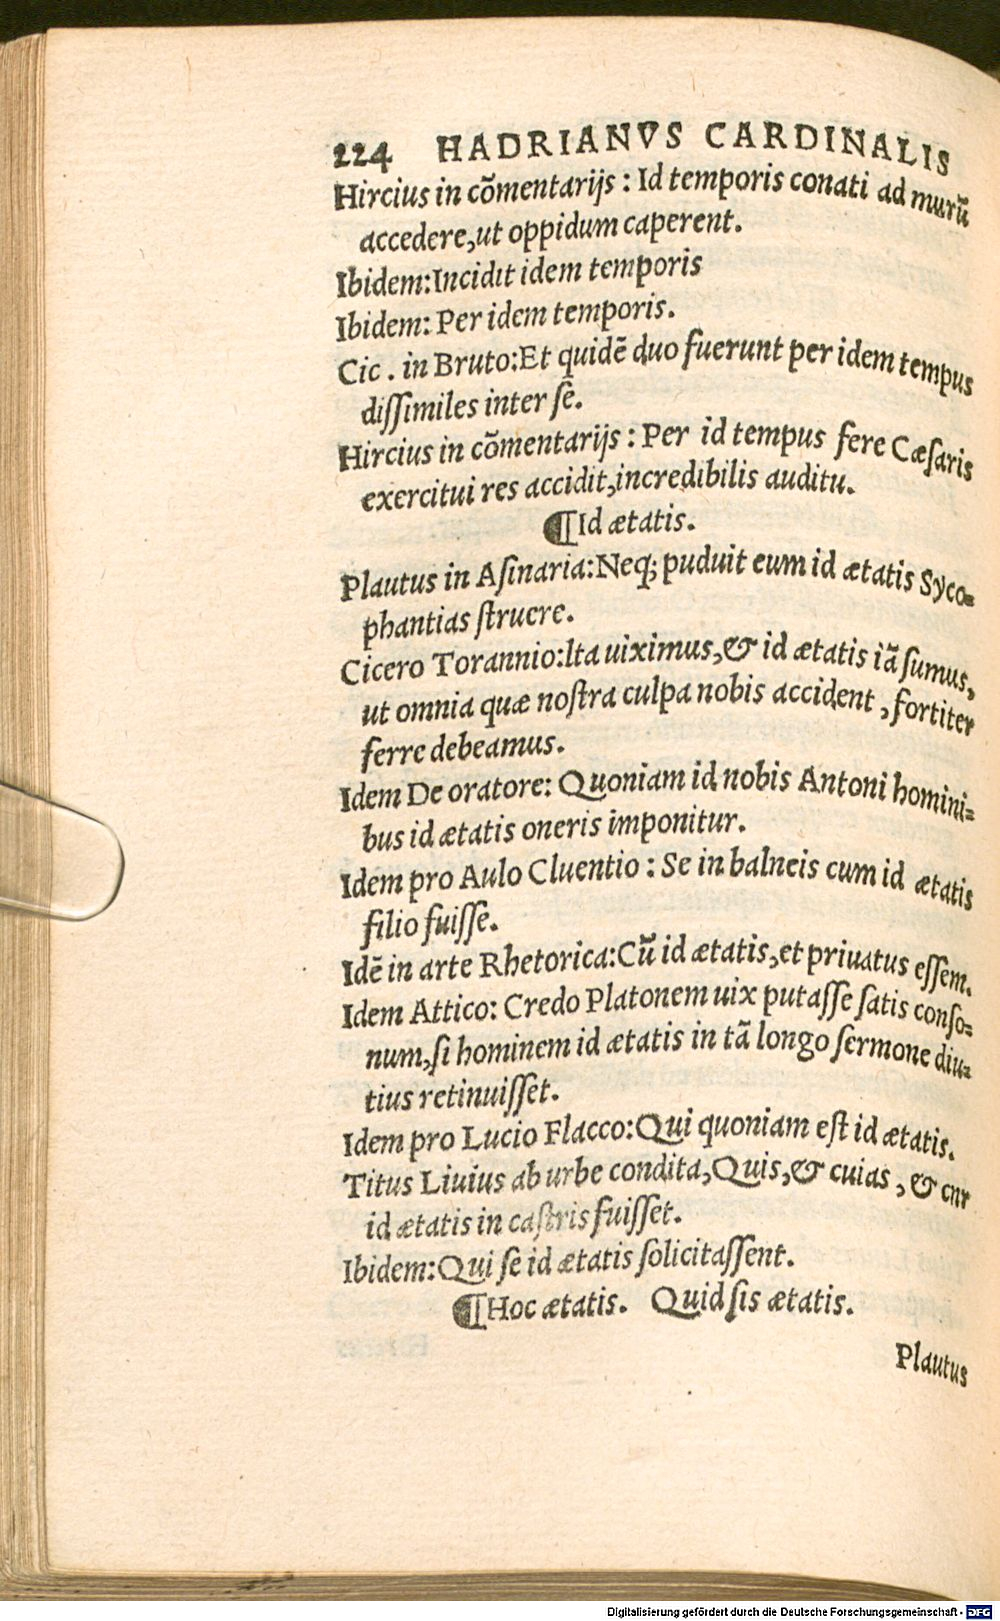 224 HADRIANVS CARDINALIS
Hircius in cõmentarijs : Id temporis conati ad murũ
accedere, ut oppidum caperent.
Ibidem: Incidit idem temporis
Ibidem: Per idem temporis.
Cic. in Bruto: Et quidẽ duo fuerunt per idem tempus
diſſimiles inter ſe.
Hircius in cõmentarijs : Per id tempus fere Cæſaris
exercitui res accidit, incredibilis auditu.
¶Id ætatis.
Plautus in Aſinaria: Neq; puduit eum id ætatis Syco=
phantias ſtruere.
Cicero Torannio: Ita uiximus, & id ætatis iã ſumus,
ut omnia quæ noſtra culpa nobis accident, fortiter
ferre debeamus.
Idem De oratore: Quoniam id nobis Antoni homini=
bus id ætatis oneris imponitur.
Idem pro Aulo Cluentio : Se in balneis cum id ætatis
filio fuiſſe.
Idẽ in arte Rhetorica: Cũ id ætatis, et priuatus eſſem.
Idem Attico: Credo Platonem uix putaſſe ſatis conſo=
num, ſi hominem id ætatis in tã longo ſermone diu=
tius retinuiſſet.
Idem pro Lucio Flacco: Qui quoniam eſt id ætatis.
Titus Liuius ab urbe condita, Quis, & cuias, & cur
id ætatis in caſtris fuiſſet.
Ibidem: Qui ſe id ætatis ſolicitaſſent.
¶Hoc ætatis. Quid ſis ætatis.
Plautus
Digitalisierung gefördert durch die Deutsche Forschungsgemeinschaft - DFG